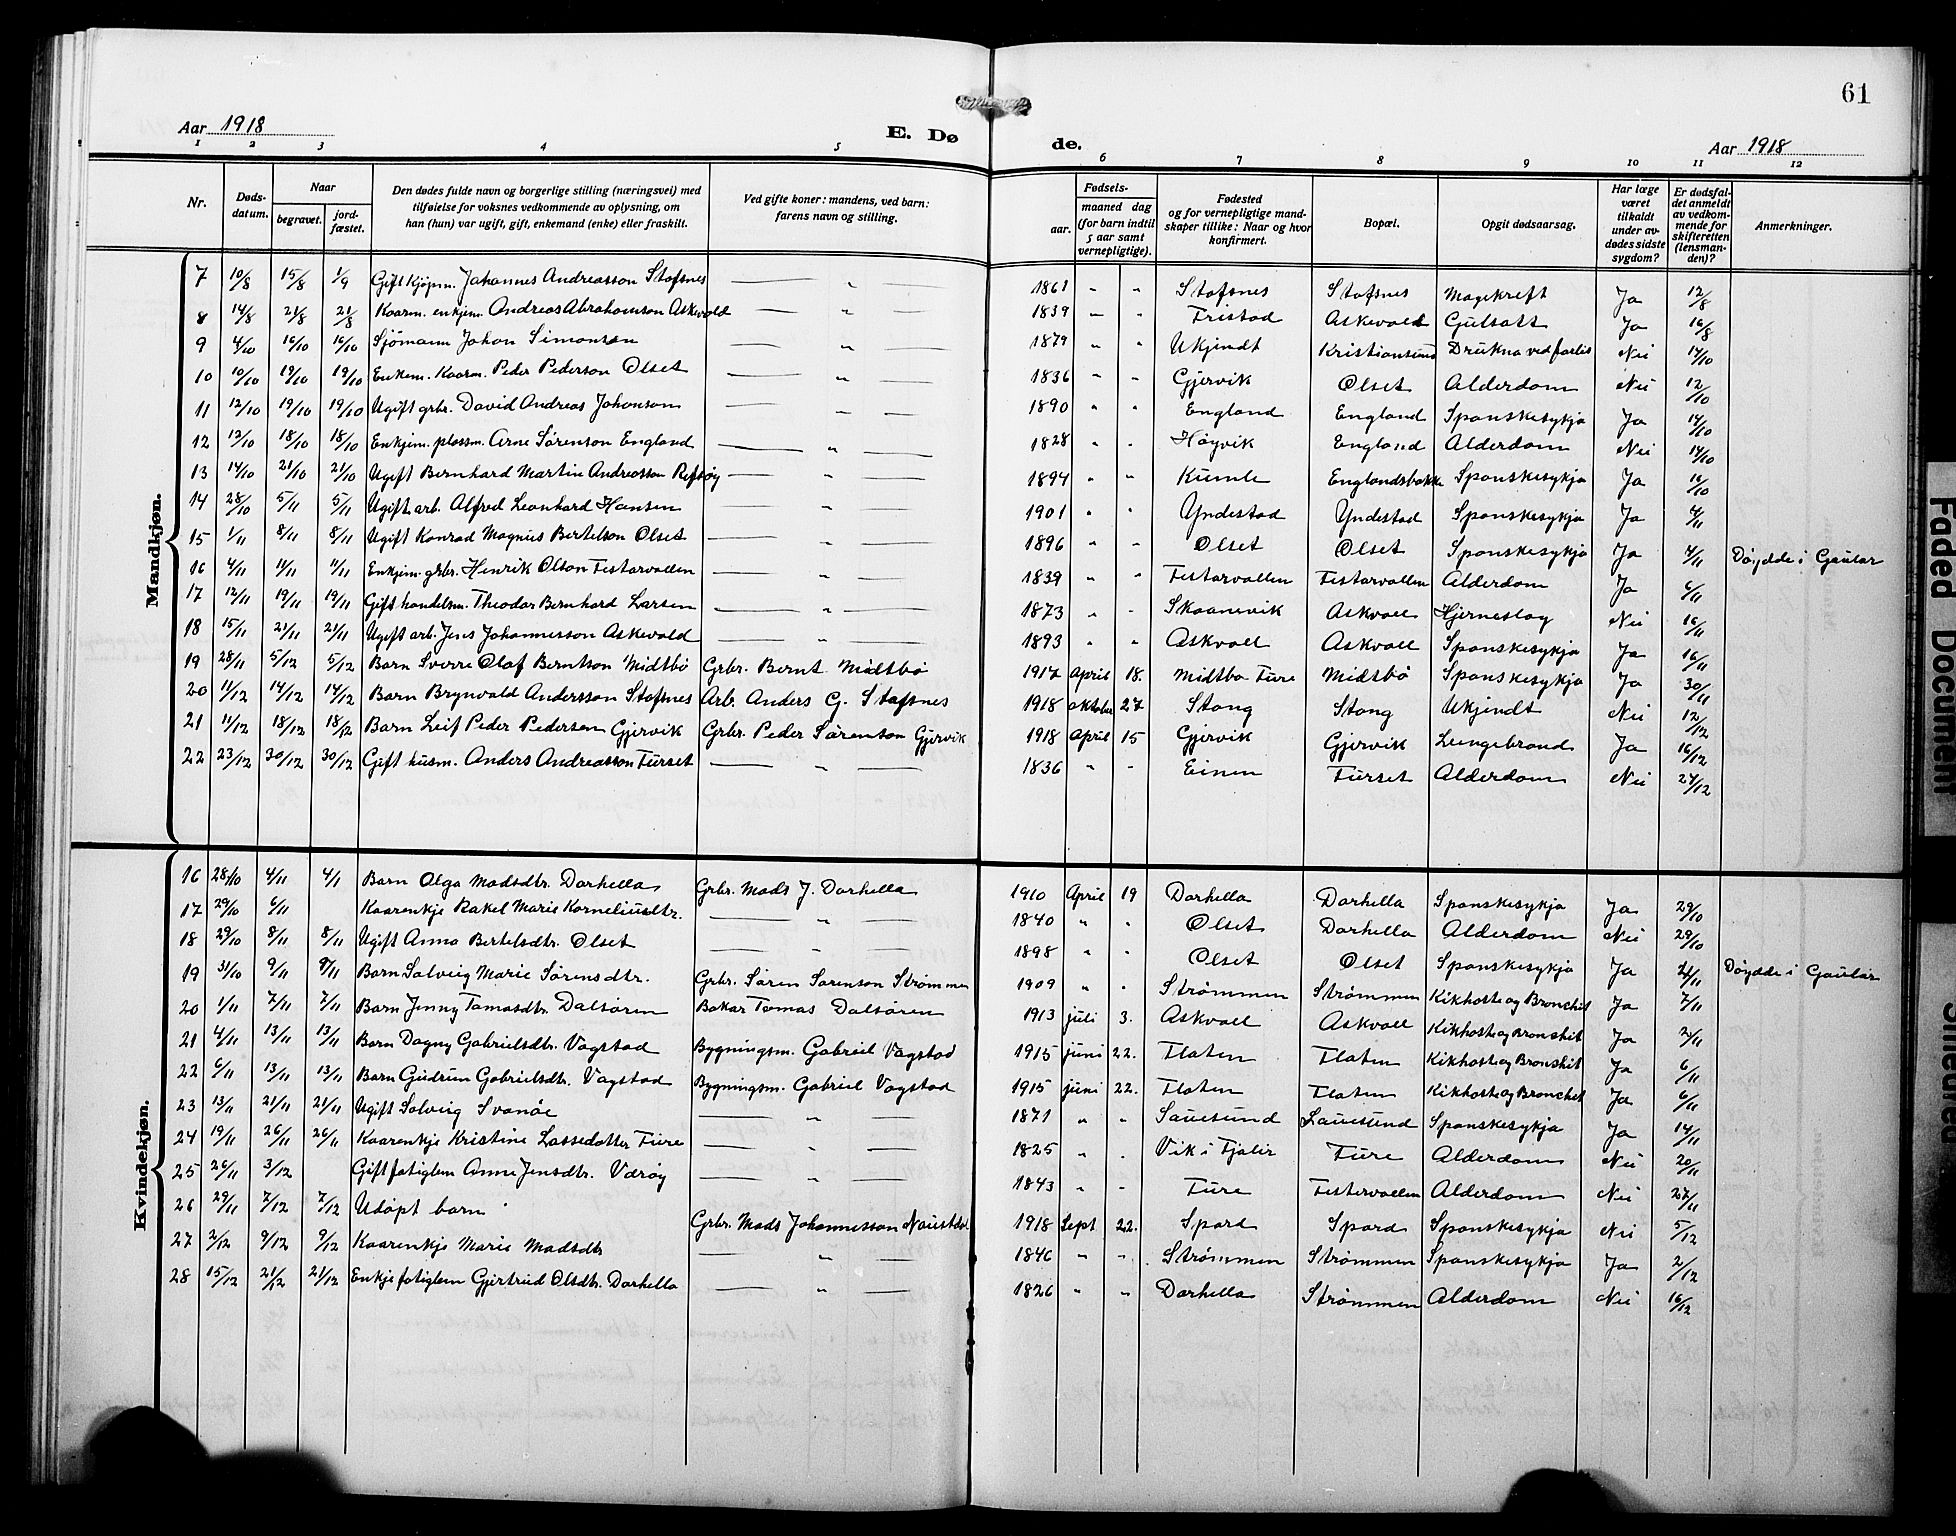 61
Aar 1918
E. Dø
de.
Aar 1918
1 2 3 4 5 6 7 8 9 10 11 12
Nr.
Døds-
datum.
Naar
begravet.
jord-
fæstet.
Den dødes fulde navn og borgerlige stilling (næringsvei) med
tilføielse for voksnes vedkommende av oplysning, om
han (hun) var ugift, gift, enkemand (enke) eller fraskilt.
Ved gifte koner: mandens, ved barn:
farens navn og stilling.
Fødsels-
aar.
maaned dag
(for barn indtil
5 aar samt
vernepligtige).
Fødested
og for vernepligtige mand-
skaper tillike: Naar og hvor
konfirmert.
Bopæl.
Opgit dødsaarsag.
Har læge
været
tilkaldt
under av-
dødes sidste
sygdom?
Er dødsfal-
det anmeldt
av vedkom-
mende for
skifteretten
(lensman-
den)?
Anmerkninger.
Mandkjøn.
7 10/8 15/8 1/9 Gift Kjøpm. Johannes Andreasson Stafsnes — " — 1861 " " Stafsnes Stafsnes Magekreft Ja 12/8
8 14/8 21/8 21/8 Kaarm. enkjem. Andreas Abrahamson Askevold — " — 1839 " " Fristad Askevold Gulsott Ja 16/8
9 4/10 16/10 16/10 Sjömann Johan Simonson — " — 1879 " " Ukjendt Kristiansund Drukna ved forlis Nei 14/10
10 10/10 19/10 19/10 Enkem. Kaarm. Peder Pederson Olset — " — 1836 " " Gjervik Olset Alderdom Nei 12/10
11 12/10 19/10 19/10 Ugift grbr. David Andreas Johanson — " — 1890 " " England England Spanskesykja Ja 14/10
12 12/10 18/10 18/10 Enkjem. plassm. Arne Sørenson England — " — 1828 " " Høyvik England Alderdom Nei 14/10
13 14/10 21/10 21/10 Ugift Bernhard Martin Andreasson Refsøy — " — 1894 " " Kumle Englandsbakke Spanskesykja Ja 16/10
14 28/10 5/11 5/11 Ugift arb. Alfred Leonhard Hansen — " — 1901 " " Yndestad Yndestad Spanskesykja Ja 4/11
15 1/11 8/11 8/11 Ugift Konrad Magnus Bertelson Olset — " — 1896 " " Olset Olset Spanskesykja Ja 4/11 Döydde i Gaular
16 4/11 11/11 11/11 Enkjem. grbr. Henrik Olson Festarvollen — " — 1839 " " Festarvollen Festarvollen Alderdom Ja 6/11
17 12/11 19/11 19/11 Gift handelsm. Theodor Bernhard Larsen — " — 1873 " " Skaanevik Askvoll Hjerneslag Nei 16/11
18 15/11 21/11 21/11 Ugift arb. Jens Johannesson Askevold — " — 1893 " " Askvoll Askvoll Spanskesykja Ja 16/11
19 28/11 5/12 5/12 Barn Sverre Olaf Berntson Midtbø Grbr. Bernt Midtbø 1917 April 18. Midtbø Fure Midtbö Spanskesykja Ja 30/11
20 11/12 14/12 14/12 Barn Brynvald Andersson Stafsnes Arb. Anders G. Stafsnes 1918 oktober 27 Stong Stong Ukjendt Nei 12/12
21 11/12 18/12 18/12 Barn Leif Peder Pedersen Gjervik Grbr. Peder Sørenson Gjervik 1918 April 15 Gjervik Gjervik Lungebrand Ja 16/12
22 23/12 30/12 30/12 Gift husm. Anders Andreasson Furset — " — 1836 " " Einen Furset Alderdom Nei 27/12
Kvindekjøn.
16 28/10 4/11 4/11 Barn Olga Madsdtr. Dorhella Grbr. Mads J. Dorhella 1910 April 19 Dorhella Dorhella Spanskesykja Ja 29/10
17 29/10 6/11 Kaarenkje Rakel Marie Korneliusdtr. — " — 1840 " " Olset Dorhella Alderdom Nei 29/10
18 29/10 8/11 8/11 Ugift Anna Bertelsdtr. Olset — " — 1898 " " Olset Olset Spanskesykja Ja Döydde i Gaular
19 31/10 9/11 9/11 Barn Solveig Marie Sørensdtr. Grbr. Søren Sørenson Strømmen 1909 " " Strømmen Strømmen Kikhoste og Bronchit Ja 7/11
20 1/11 7/11 7/11 Barn Jenny Tomasdtr. Dalsøren Bakar Tomas Dalsøren 1913 juli 3. Askvoll Askvoll Kikhoste og Bronchit Ja 2/11
21 4/11 13/11 13/11 Barn Dagny Gabrielsdtr. Vagstad Bygningsm. Gabriel Vagstad 1915 juni 22. Flaten Flaten Kikhoste og Bronchit Ja 6/11
22 6/11 13/11 13/11 Barn Gudrun Gabrielsdtr. Vagstad Bygningsm. Gabriel Vagstad 1915 juni 22. Flaten Flaten Kikhoste og Bronchit Ja 6/11
23 13/11 21/11 21/11 Ugift Solveig Svanöe — " — 1871 " " Sauesund Sauesund Spanskesykja Ja 14/11
24 19/11 26/11 26/11 Kaarenkje Kristine Lassedotter Fure — " — 1825 " " Vik i Fjaler Fure Alderdom Nei 20/11
25 26/11 3/12 Gift fatiglem Anne Jensdtr. Værøy — " — 1843 " " Fure Festervollen Alderdom Nei 27/11
26 29/11 7/12 7/12 Udöpt barn Grbr. Mads Johannesson Naustdal 1918 Sept 22. Spord Spord Spanskesykja Nei 5/12
27 2/12 9/12 9/12 Kaarenkje Marie Madsdtr — " — 1846 " " Strømmen Strømmen Spanskesykja Ja 2/12
28 15/12 21/12 21/12 Enkje fatiglem Gjertrud Olsdtr. Dorhella — " — 1826 " " Dorhella Strømmen Alderdom Nei 16/12
Faded Document